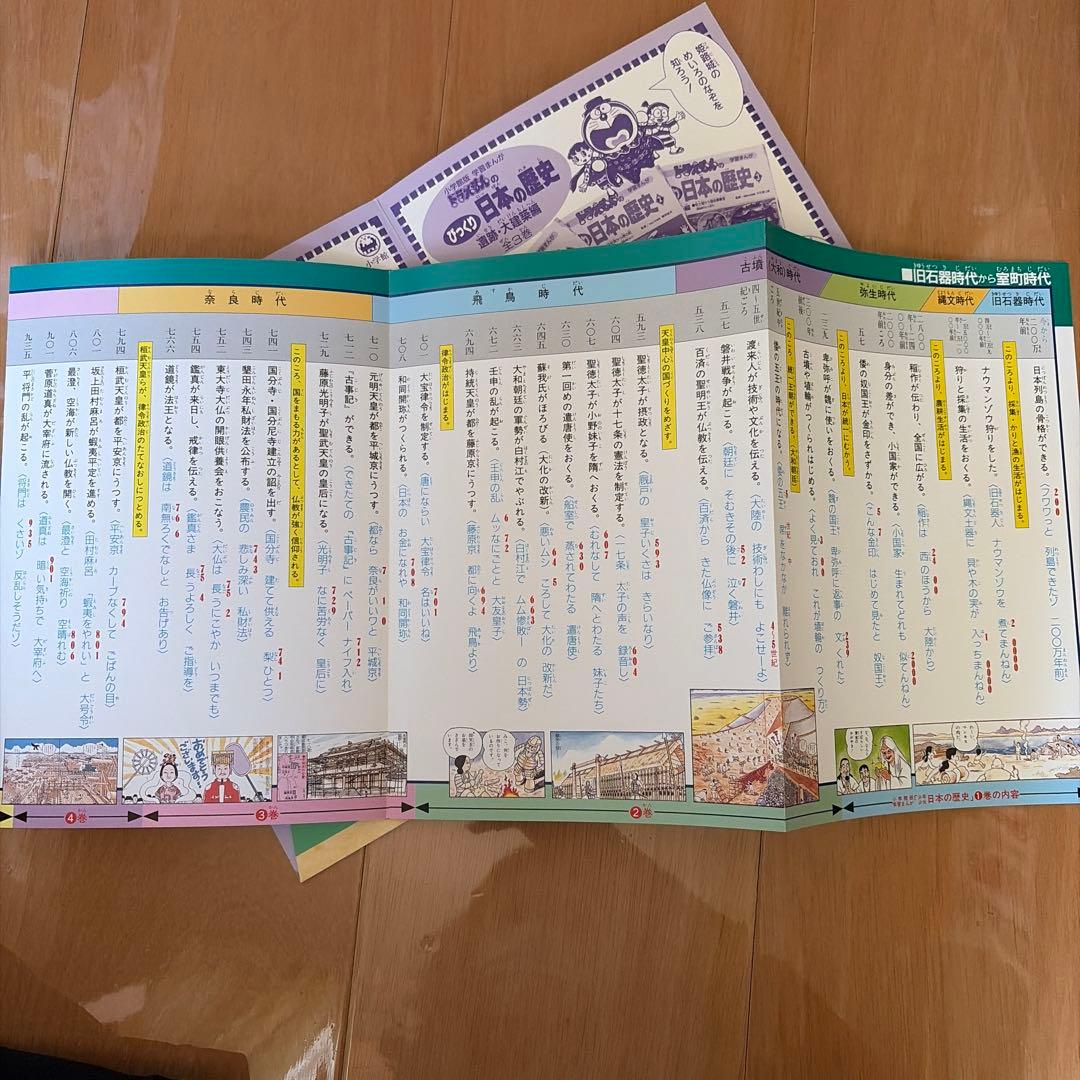 姫路城の
めいろのなぞを
知ろう！
小学館版 学習まんが
ドラえもんの
びっくり 日本の歴史
遺跡・大建築編
全3巻
小学館
■旧石器時代から室町時代
旧石器時代
縄文時代
弥生時代
古墳(大和)時代
飛鳥時代
奈良時代
日本列島の骨格ができる。
200
〈フワワっと 列島できたゾ 二〇〇万年前〉
このころより、採集・かりと漁の生活がはじまる。
ナウマンゾウ狩りをした。
〈旧石器人 ナウマンゾウを 煮てまんねん〉
2 0000
狩りと採集の生活をおくる。
〈縄文土器に 貝や木の実が 入っちまんねん〉
1 0000
このころより、農耕生活がはじまる。
稲作が伝わり、全国に広がる。
〈稲作は 西のほうから 大陸から〉
身分の差ができ、小国家ができる。
〈小国家 生まれてどれも 似てんねん〉
五七
倭の奴国王が金印をさずかる。
57
〈こんな金印 はじめて見たと 奴国王〉
このころより、日本が統一にとむかう。
二三九
卑弥呼が魏に使いをおくる。
239
〈魏の国王 卑弥呼に返事の 文くれた〉
古墳や埴輪がつくられはじめる。
〈よく見ておれ これが埴輪の つくり方〉
倭の五王の時代になる。
四〜五世紀ごろ
渡来人が技術や文化を伝える。
4〜5世紀
〈大陸の 技術わしにも よこせーよ〉
五二七
磐井戦争が起こる。
527
〈朝廷に そむきその後に 泣く磐井〉
五三八
百済の聖明王が仏教を伝える。
538
〈百済から きた仏像に ご参拝〉
天皇中心の国づくりをめざす。
聖徳太子が摂政となる。
〈厩戸の 皇子いくさは きらいなり〉
六〇四
聖徳太子が十七条の憲法を制定する。
604
〈一七条 太子の声を 録音し〉
六〇七
聖徳太子が小野妹子を隋へおくる。
607
〈むれなして 隋へとわたる 妹子たち〉
六三〇
第一回めの遣唐使をおくる。
630
〈船室で 蒸されてわたる 遣唐使〉
六四五
蘇我氏がほろびる(大化の改新)。
64 5
〈悲しムシ ころして大化の 改新だ〉
六六三
大和朝廷の軍勢が白村江でやぶれる。
663
〈白村江で ムム惨敗ー の 日本勢〉
六七二
壬申の乱が起こる。
6 72
〈壬申の乱 ムッなにごとと 大友皇子〉
六九四
持統天皇が都を藤原京にうつす。
694
〈藤原京 都に向くよ 飛鳥より〉
律令政治がはじまる。
七〇一
大宝律令を制定する。
701
〈唐にならい 大宝律令 名はいいね〉
七〇八
和同開珎がつくられる。
708
〈日本の お金になれや 和同開珎〉
七一〇
元明天皇が都を平城京にうつす。
71 0
〈都なら 奈良がいいワと 平城京〉
七一二
『古事記』ができる。
712
〈できたての『古事記』に ペーパー ナイフ入れ〉
七二九
藤原光明子が聖武天皇の皇后になる。
729
〈光明子 なに苦労なく 皇后に〉
このころ、国をまもる力があるとして、仏教が強く信仰される。
七四一
国分寺・国分尼寺建立の詔を出す。
741
〈国分寺 建てて供える 梨ひとつ〉
七四三
墾田永年私財法を公布する。
743
〈農民の 悲しみ深い 私財法〉
七五二
東大寺大仏の開眼供養会をおこなう。
75 2
〈大仏は 長うにこやか いつまでも〉
七五四
鑑真が来日し、戒律を伝える。
75 4
〈鑑真さま 長うよろしく ご指導を〉
七六六
道鏡が法王となる。
766
〈道鏡は 南無ろくでなしと お告げあり〉
桓武天皇らが、律令政治のたてなおしにつとめる。
七九四
桓武天皇が都を平安京にうつす。
794
〈平安京 カーブなくして ごばんの目〉
八〇一
坂上田村麻呂が蝦夷平定を進める。
801
〈田村麻呂 「蝦夷をやれい」と 大号令〉
八〇六
最澄、空海が新しい仏教を開く。
806
〈最澄と 空海祈り 空晴れむ〉
九〇一
菅原道真が大宰府に流される。
901
〈道真は 暗い気持ちで 大宰府へ〉
九三五
平将門の乱が起こる。
935
〈将門は くさいゾ 反乱しそうだゾ〉
おめでとうございます
日本の歴史❶巻の内容
❷巻
❸巻
❹巻